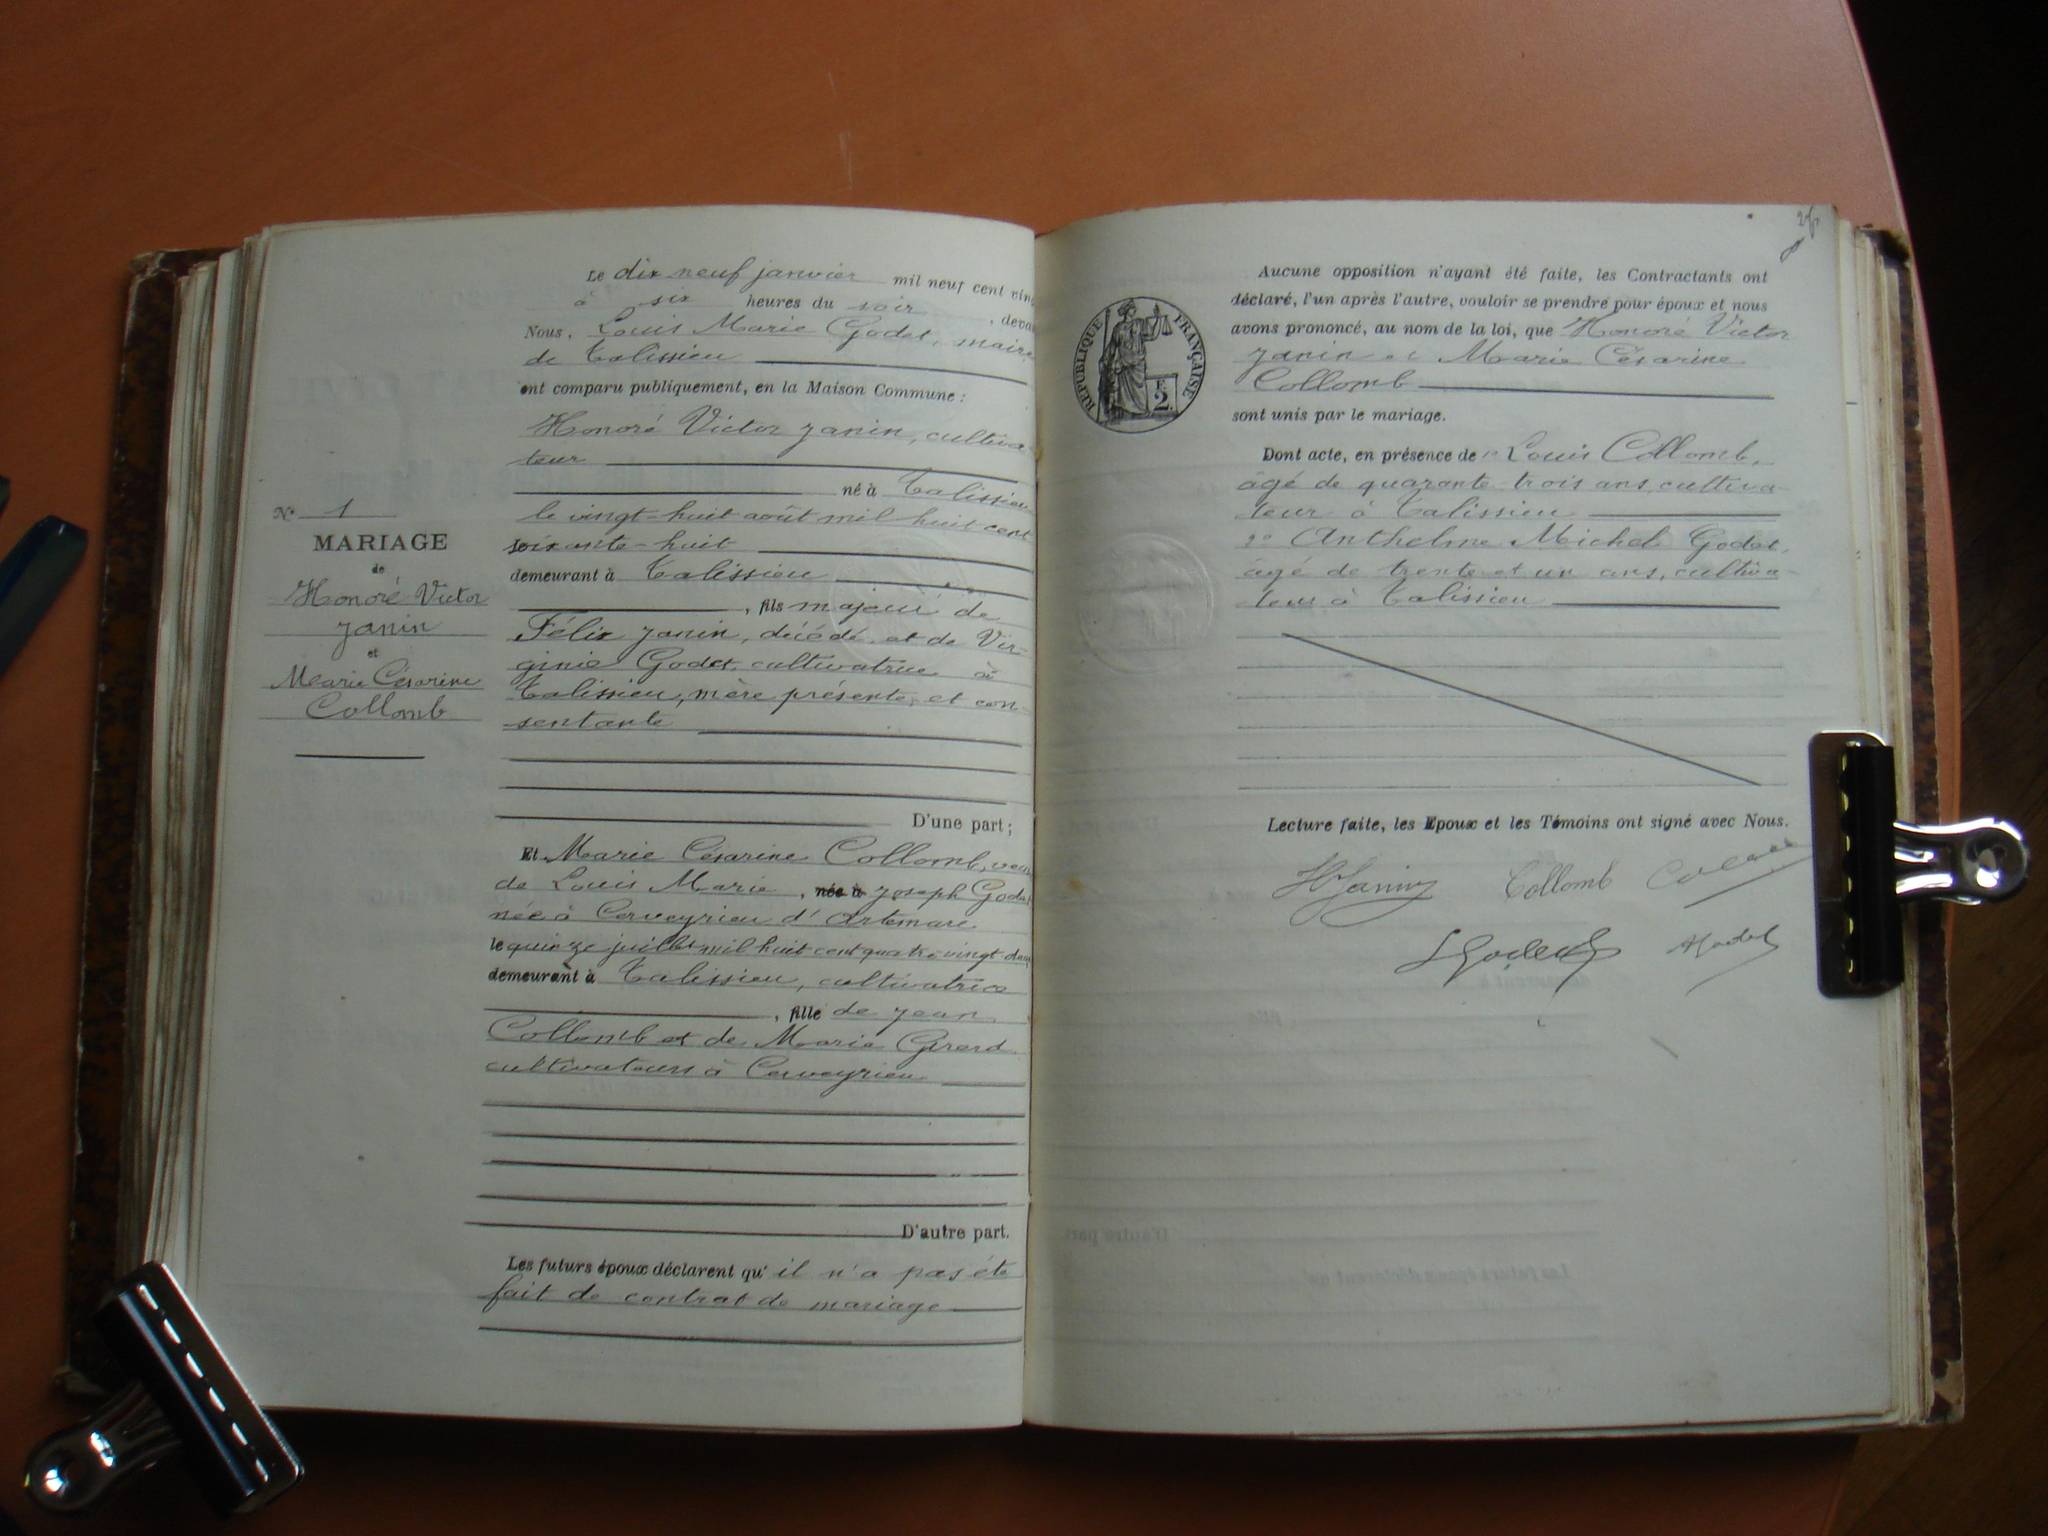 Le dix neuf janvier mil neuf cent vin
à six heures du soir , deva
Nous, Louis Marie Godet, maire
de Talissieu
ont comparu publiquement, en la Maison Commune :
Honoré Victor Janin, cultiva-
teur
né à Talissieu
le vingt-huit août mil huit cent
soixante-huit
demeurant à Talissieu
, fils majeur de
Félix Janin, décédé, et de Vir-
ginie Godet, cultivatrice à
Talissieu, mère présente, et con-
sentante
D'une part ;
N° 1
MARIAGE
de
Honoré Victor
Janin
et
Marie Césarine
Collomb
Et Marie Césarine Collomb, veuv
de Louis Marie, née à Joseph Godet
née à Cerveyrieu d'Artemare
le quinze juillet mil huit cent quatre vingt-deux
demeurant à Talissieu, cultivatrice
, fille de Jean
Collomb et de Marie Girerd
cultivateurs à Cerveyrieu
D'autre part.
Les futurs époux déclarent qu' il n'a pas été
fait de contrat de mariage
RÉPUBLIQUE FRANÇAISE
2 F.
Aucune opposition n'ayant été faite, les Contractants ont
déclaré, l'un après l'autre, vouloir se prendre pour époux et nous
avons prononcé, au nom de la loi, que Honoré Victor
Janin et Marie Césarine
Collomb
sont unis par le mariage.
Dont acte, en présence de 1° Louis Collomb,
âgé de quarante-trois ans, cultiva-
teur à Talissieu
2° Anthelme Michel Godet,
âgé de trente et un ans, cultiva-
teur à Talissieu
Lecture faite, les Epoux et les Témoins ont signé avec Nous.
H Janin Collomb Collomb
L Godet A Godet